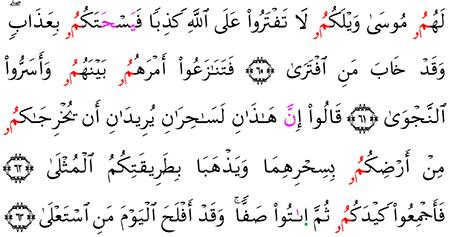 لَهُمُۥ مُوسَىٰ وَيْلَكُمُۥ لَا تَفْتَرُوا۟ عَلَى ٱللَّهِ كَذِبًا فَيَسْحَتَكُمُۥ بِعَذَابٍۖ
وَقَدْ خَابَ مَنِ ٱفْتَرَىٰ ﴿٦٠﴾ فَتَنَٰزَعُوا۟ أَمْرَهُمُۥ بَيْنَهُمُۥ وَأَسَرُّوا۟
ٱلنَّجْوَىٰ ﴿٦١﴾ قَالُوا۟ إِنَّ هَٰذَٰنِ لَسَٰحِرَٰنِ يُرِيدَٰنِ أَن يُخْرِجَٰكُمُۥ
مِنْ أَرْضِكُمُۥ بِسِحْرِهِمَا وَيَذْهَبَا بِطَرِيقَتِكُمُ ٱلْمُثْلَىٰ ﴿٦٢﴾
فَأَجْمِعُوا۟ كَيْدَكُمُۥ ثُمَّ ٱئْتُوا۟ صَفًّاۚ وَقَدْ أَفْلَحَ ٱلْيَوْمَ مَنِ ٱسْتَعْلَىٰ ﴿٦٣﴾